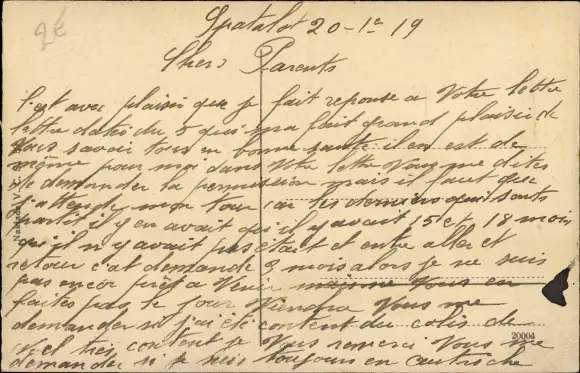 2€
Spatalot 20-1e 19
Chers Parents
C'est avec plaisir que je fait reponse a Votre lettre
lettre datés du 5 qui ma fait grand plaisir de
Vous savoir tous en bonne santé il en est de
même pour moi dans Votre lettre Vous me dites
de demander la permission mais il faut que
j'attende mon tour car les derniers qui sont
parti il y en avait qu'il y avait 15 et 18 mois
qu'il n'y avait pas etait et entre aller et
retour c'at demande 3 mois alors je ne suis
pas encor prêt a Venir Vous en
faites pas le jour Viendra Vous me
demander si j'ai été content du colis de
Noel très content je Vous remerci Vous me
demander si je suis toujours en autriche
20004